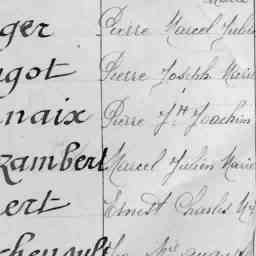 ger Pierre Marcel Julien
ngot Pierre Joseph Marie
naix Pierre J.H Joachim
zambert Marcel Julien Marie
ert Ernest Charles